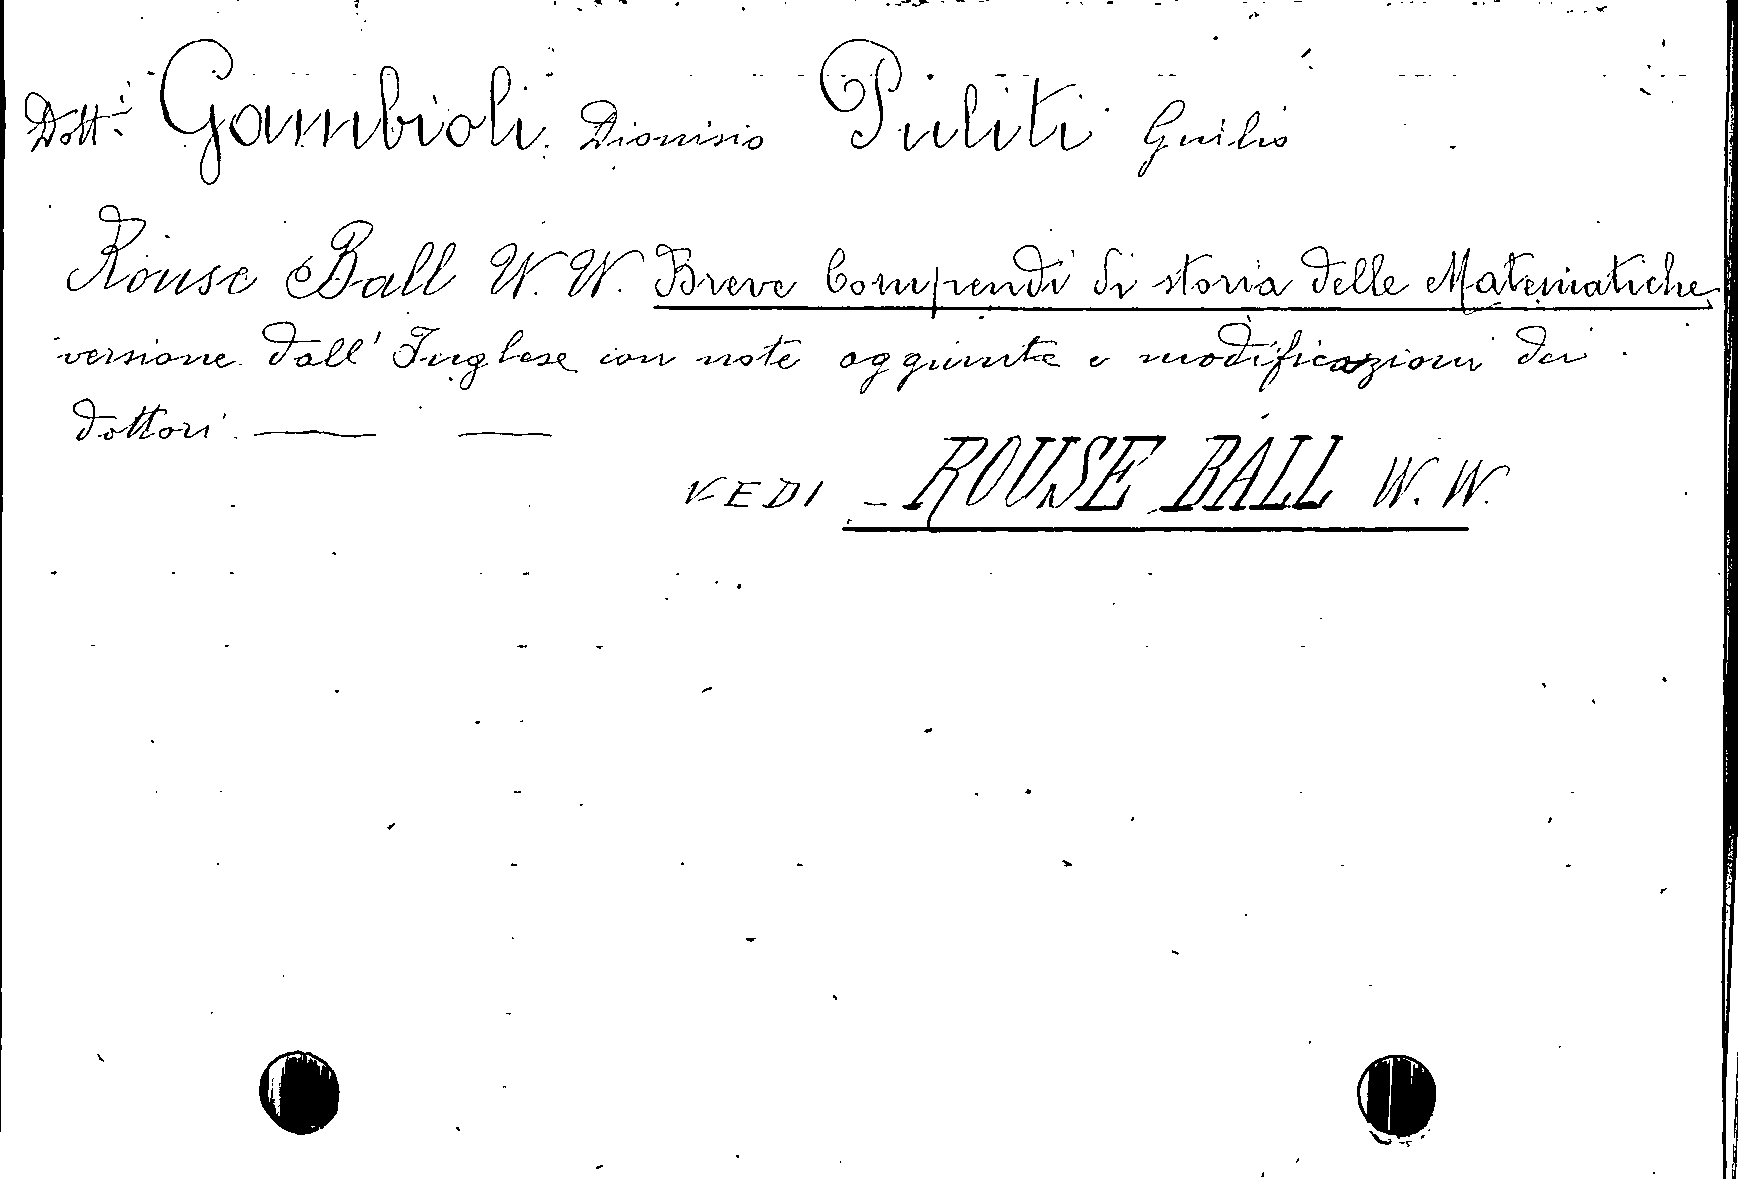 Dott.i Gambioli Dionisio Puliti Giulio
Rouse Ball W. W. Breve Compendi di storia delle Matematiche
versione dall' Inglese con note aggiunte e modificazioni dei
dottori — —
VEDI - ROUSE BALL W. W.